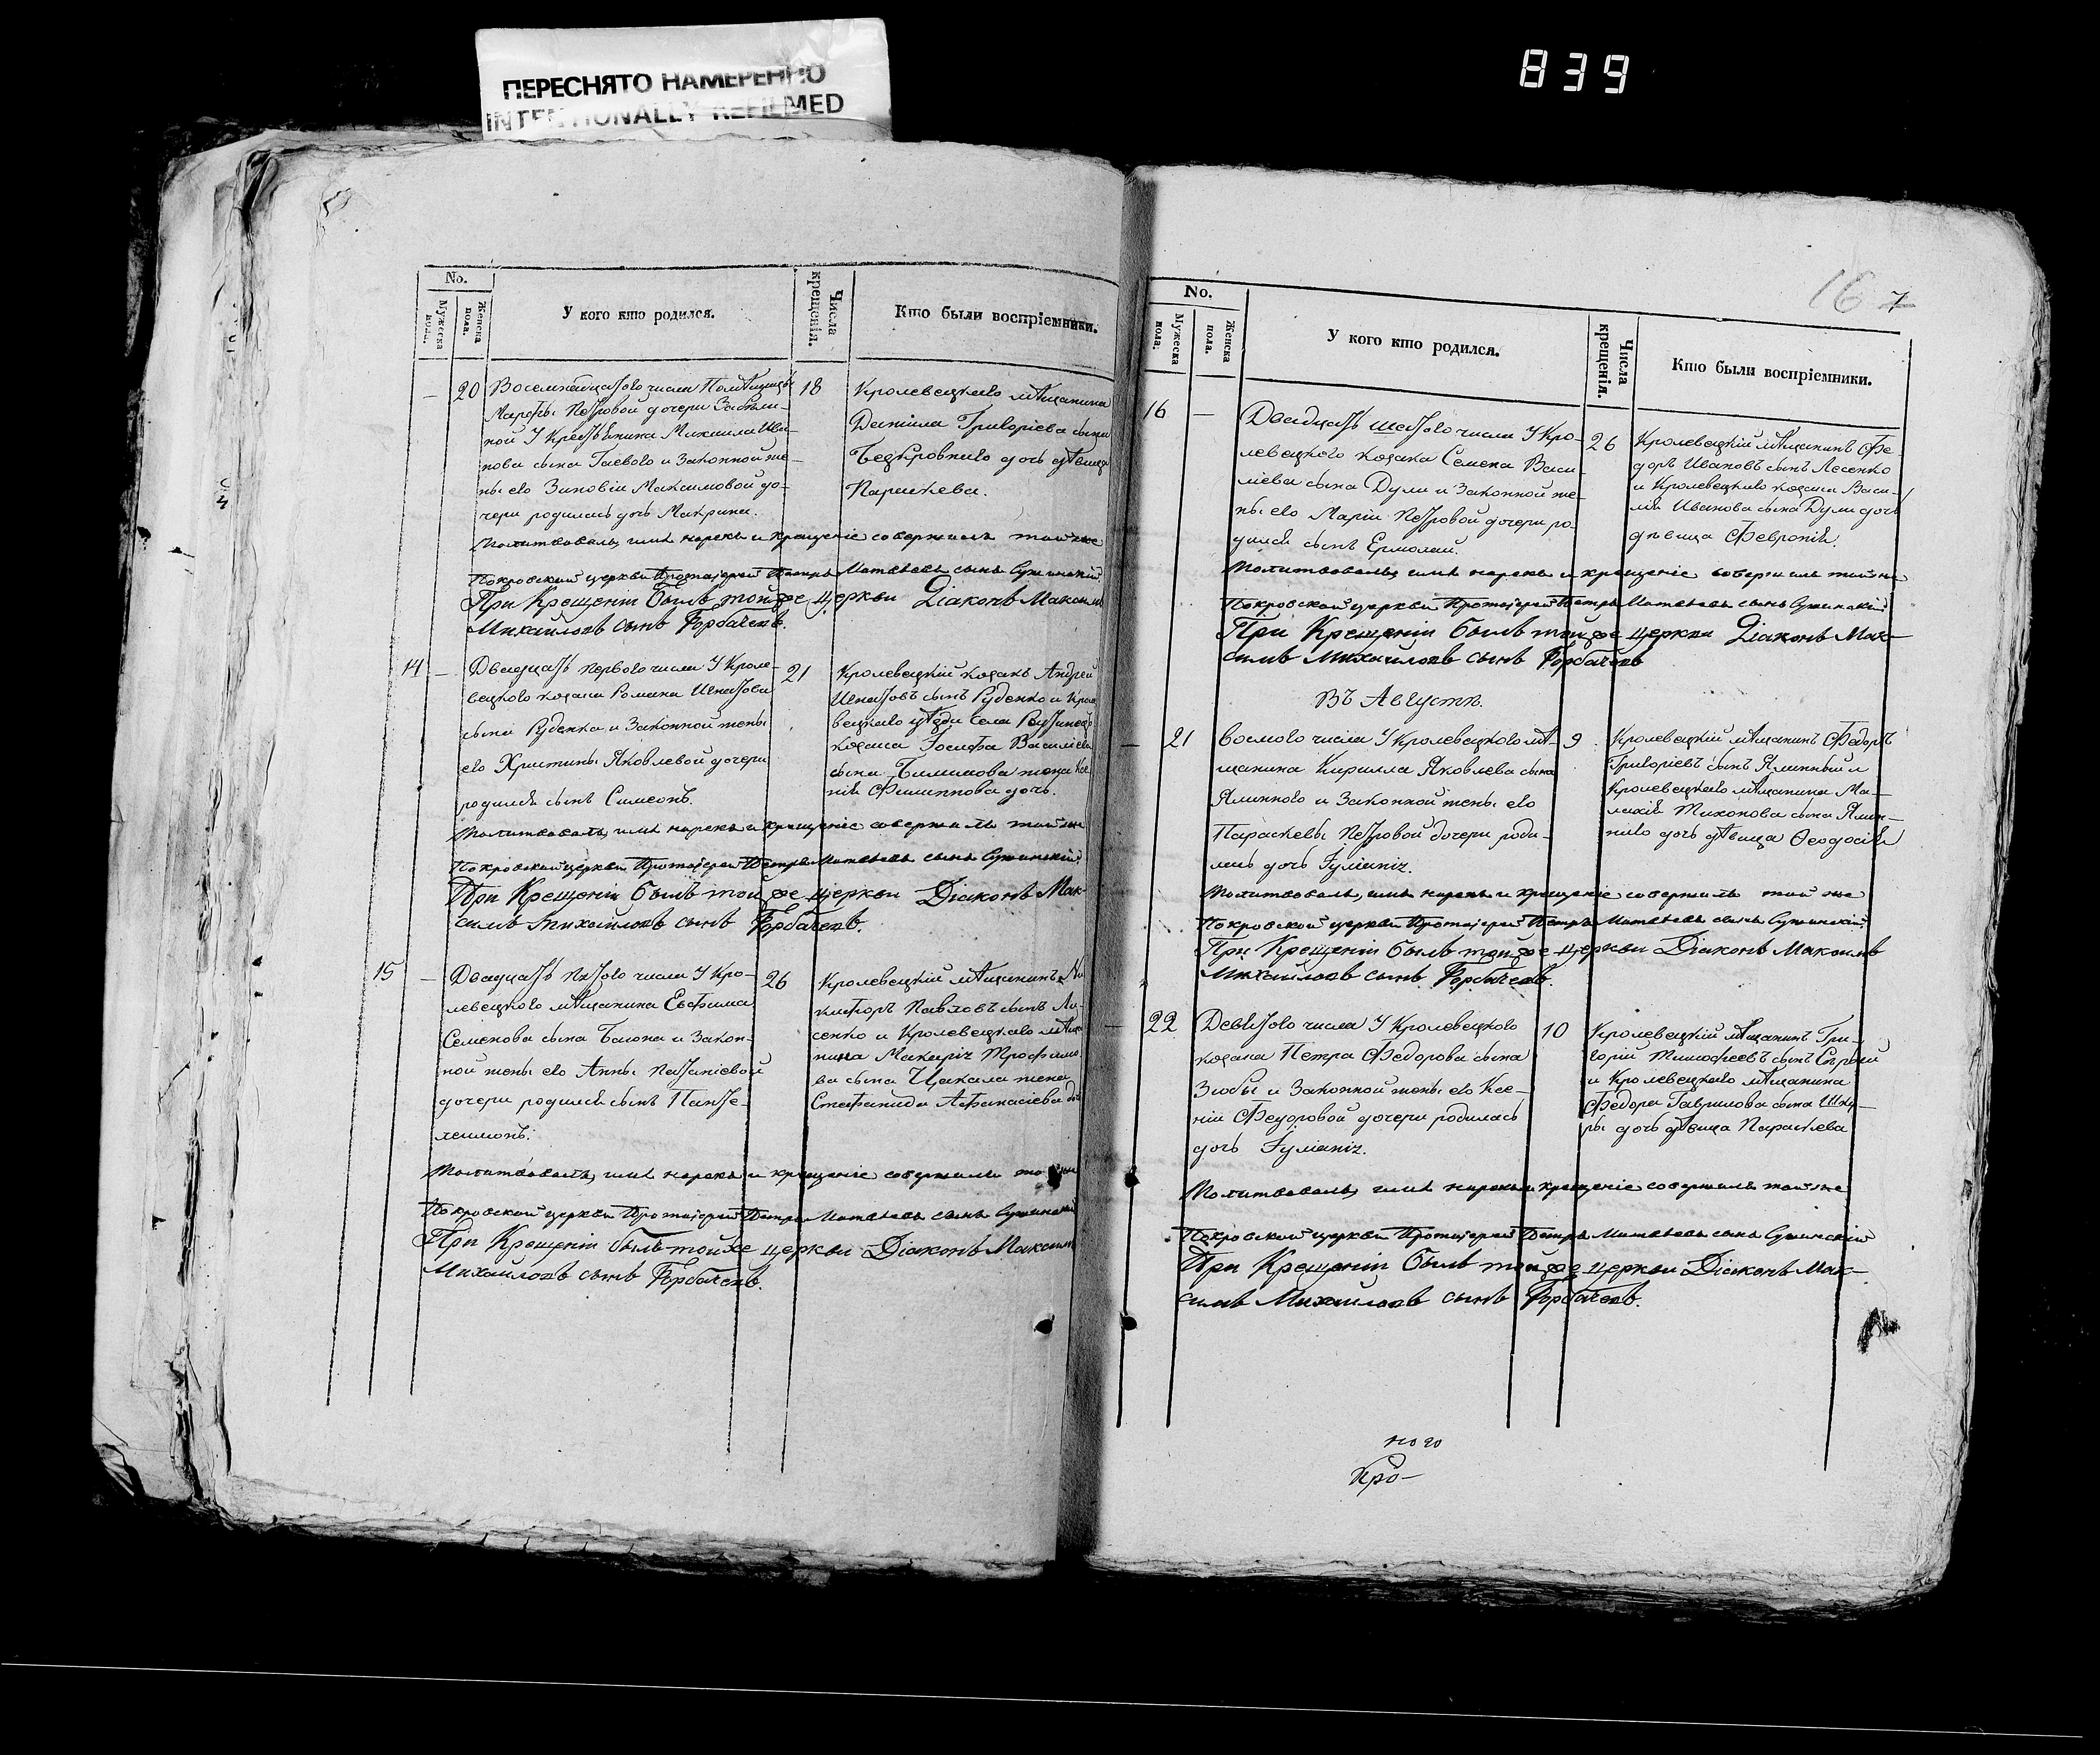 ПЕРЕСНЯТО НАМЕРЕННО
INTENTIONALLY REFILMED
839
No.
Мужеска пола.
Женска пола.
У кого кто родился.
Числа крещенія.
Кто были воспріемники.
— 20
Восемнадцатого числа Помѣщицы
Петровой дочери
ной У Крестьянина Михаила Ива-
нова сына Гаевого и Законной же-
ны его Зиновіи Максимовой до-
чери родилась дочь Макрина.
18
Кролевецкаго мѣщанина
Даніила Григоріева сына
дочь дѣвица
Параскева.
Молитвовалъ, имя нарекъ и крещеніе совершилъ той же
Покровской церкви Протоіерей Петръ Матвѣевъ сынъ
При Крещеніи былъ той же церкви Діаконъ Максимъ
Михайловъ сынъ Горбачевъ.
14 —
Двадцать перваго числа У Кроле-
вецкого козака Романа Игнатова
сына Руденка и Законной жены
его Христины Яковлевой дочери
родился сынъ Симеонъ.
21
Кролевецкій козакъ Андрей
Игнатовъ сынъ Руденко и Кроле
вецкаго уѣзда Села
козака Іосифа Василіева
сына жена Ксе
нія Филиппова дочь.
Молитвовалъ, имя нарекъ и крещеніе совершилъ той же
Покровской церкви Протоіерей Петръ Матвѣевъ сынъ
При Крещеніи былъ той же церкви Діаконъ Мак-
симъ Михайловъ сынъ Горбачевъ.
15 —
Двадцать пятого числа У Кро-
левецкого мѣщанина Евфима
Семенова сына и Закон-
ной жены его Анны
дочери родился сынъ Панте-
леимонъ.
26
Кролевецкій мѣщанинъ Ни
кифоръ Павловъ сынъ Ли-
сенко и Кролевецкаго мѣща
нина Макарія Трофимо
ва сына Цакала жена
Стефанида Афанасіева доч
Молитвовалъ, имя нарекъ и крещеніе совершилъ той же
Покровской церкви Протоіерей Петръ Матвѣевъ сынъ
При Крещеніи былъ той же церкви Діаконъ Максимъ
Михайловъ сынъ Горбачевъ.
16 7
No.
Мужеска пола.
Женска пола.
У кого кто родился.
Числа крещенія.
Кто были воспріемники.
16 —
Двадцать шестого числа У Кро-
левецкого козака Семена Васи-
ліева сына Дули и Законной же-
ны его Маріи Петровой дочери ро-
дился сынъ Ермолай.
26
Кролевецкій мѣщанинъ Фе-
доръ Ивановъ сынъ Лесенко
и Кролевецкаго козака Васи-
лія Иванова сына Дули дочь
дѣвица Февронія.
Молитвовалъ, имя нарекъ и крещеніе совершилъ той же
Покровской церкви Протоіерей Петръ Матвѣевъ сынъ
При Крещеніи былъ той же церкви Діаконъ Мак-
симъ Михайловъ сынъ Горбачевъ
Въ Августѣ.
— 21
Восмого числа У Кролевецкого мѣ-
щанина Кирилла Яковлева сына
Ялинного и Законной жены его
Параскевы Петровой дочери роди-
лась дочь Іуліанія.
9
Кролевецкій мѣщанинъ Федоръ
Григоріевъ сынъ Ялинный и
Кролевецкаго мѣщанина Ма-
лахія Тихонова сына Ялин-
наго дочь дѣвица Ѳеодосія
Молитвовалъ, имя нарекъ и крещеніе совершилъ той же
Покровской церкви Протоіерей Петръ Матвѣевъ сынъ
При Крещеніи былъ той же церкви Діаконъ Максимъ
Михайловъ сынъ Горбачевъ.
— 22
Девятого числа У Кролевецкого
козака Петра Федорова сына
Зюбы и Законной жены его Ксе-
ніи Федоровой дочери родилась
дочь Іуліанія.
10
Кролевецкій мѣщанинъ Гри-
горій Тимофеевъ сынъ
и Кролевецкаго мѣщанина
Федора Гаврилова сына Шку-
ры дочь дѣвица Параскева
Молитвовалъ, имя нарекъ и крещеніе совершилъ той же
Покровской церкви Протоіерей Петръ Матвѣевъ сынъ
При Крещеніи былъ той же церкви Діаконъ Мак-
симъ Михайловъ сынъ Горбачевъ.
Про-